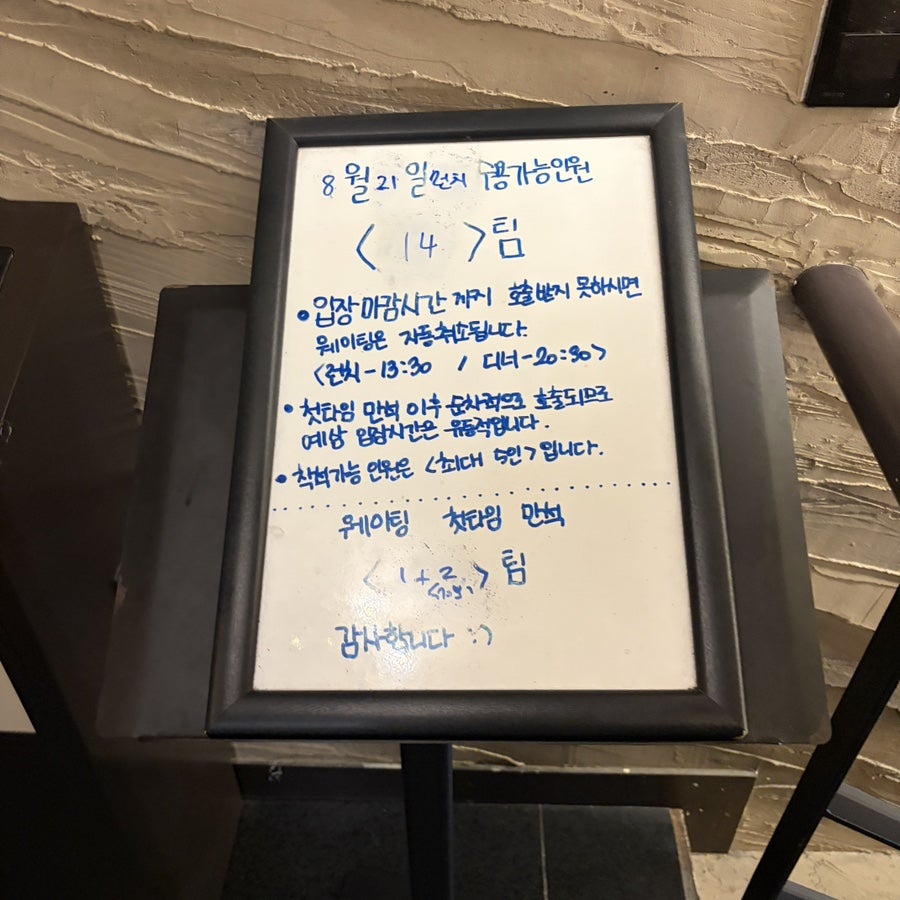 8월 21일 런치 수용가능인원
< 14 >팀
• 입장 마감시간 까지 호출받지 못하시면
웨이팅은 자동취소됩니다.
<런치-13:30 / 디너-20:30>
• 첫타임 만석 이후 순차적으로 호출되므로
예상 입장시간은 유동적입니다.
• 착석가능 인원은 <최대 5인>입니다.
웨이팅 첫타임 만석
< 1+2 >팀
감사합니다 :)